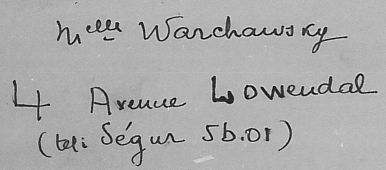 Melle Warchawsky
4 Avenue Lowendal
(tel: Ségur 56.01)